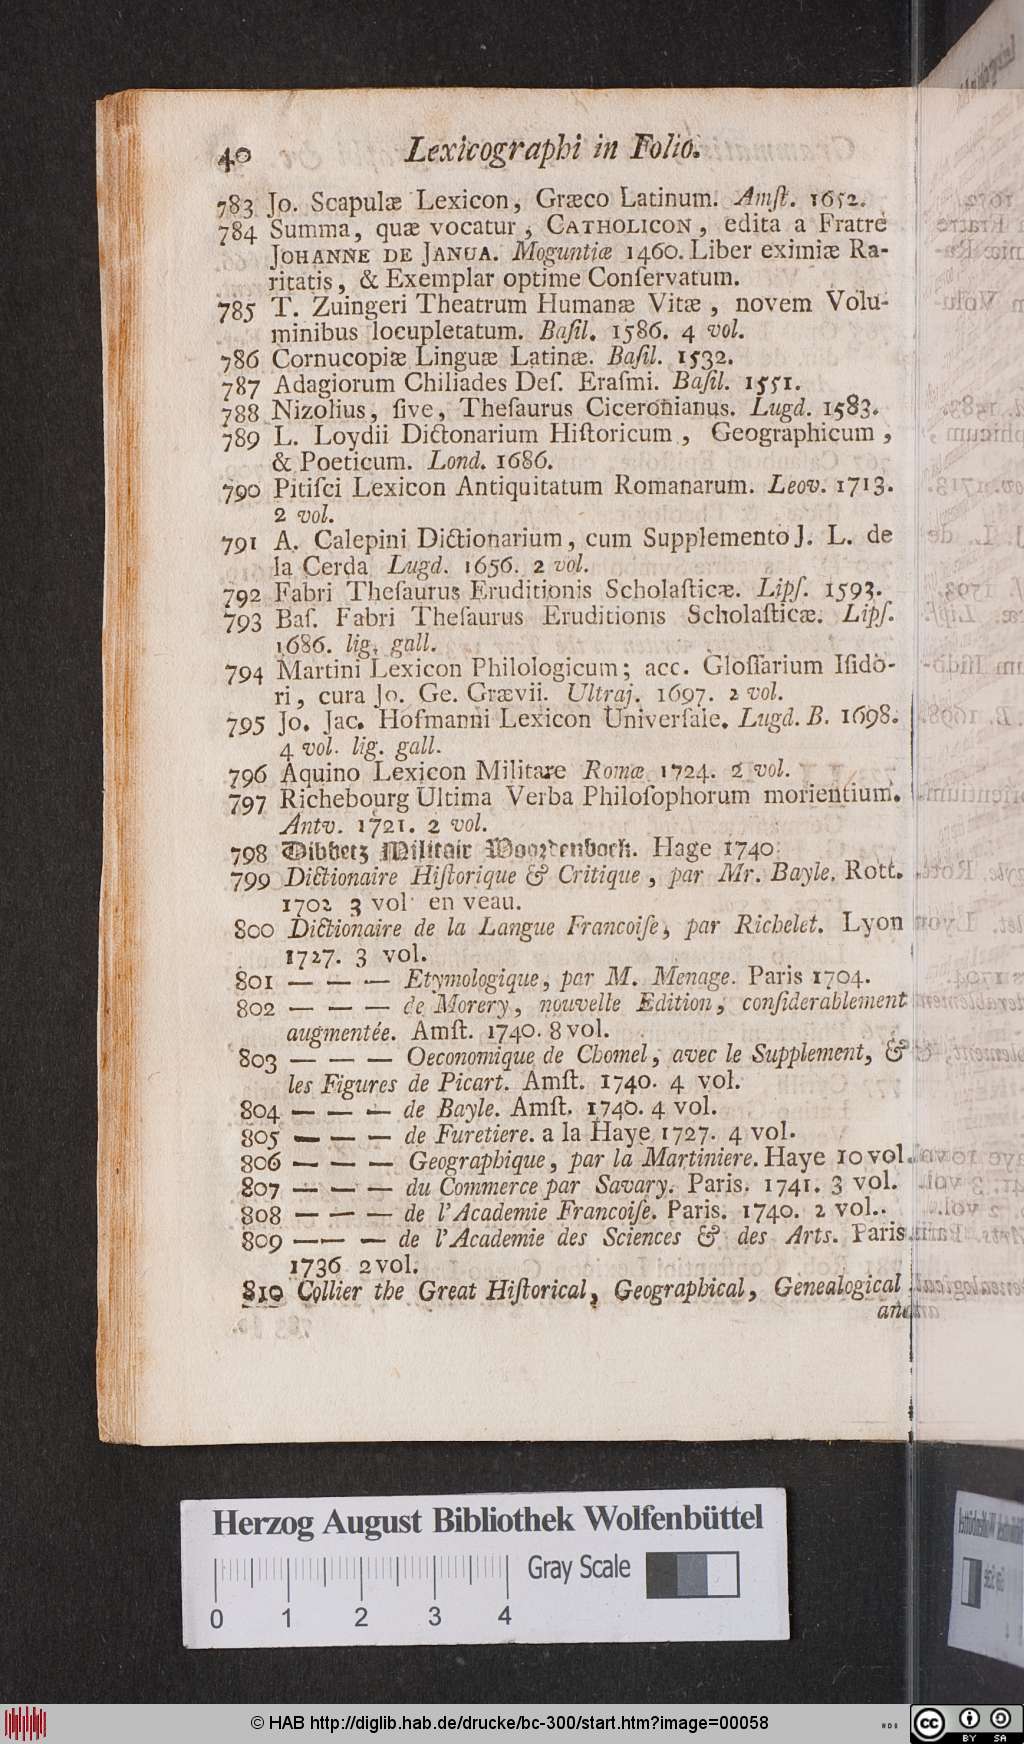 40 Lexicographi in Folio.
783 Jo. Scapulæ Lexicon, Græco Latinum. Amſt. 1652.
784 Summa, quæ vocatur, CATHOLICON, edita a Fratre
JOHANNE DE JANUA. Moguntiæ 1460. Liber eximiæ Ra-
ritatis, & Exemplar optime Conſervatum.
785 T. Zuingeri Theatrum Humanæ Vitæ, novem Volu-
minibus locupletatum. Baſil. 1586. 4 vol.
786 Cornucopiæ Linguæ Latinæ. Baſil. 1532.
787 Adagiorum Chiliades Deſ. Eraſmi. Baſil. 1551.
788 Nizolius, ſive, Theſaurus Ciceronianus. Lugd. 1583.
789 L. Loydii Dictonarium Hiſtoricum, Geographicum,
& Poeticum. Lond. 1686.
790 Pitiſci Lexicon Antiquitatum Romanarum. Leov. 1713.
2 vol.
791 A. Calepini Dictionarium, cum Supplemento J. L. de
la Cerda Lugd. 1656. 2 vol.
792 Fabri Theſaurus Eruditionis Scholaſticæ. Lipſ. 1593.
793 Baſ. Fabri Theſaurus Eruditionis Scholaſticæ. Lipſ.
1686. lig. gall.
794 Martini Lexicon Philologicum; acc. Gloſſarium Iſido-
ri, cura Jo. Ge. Grævii. Ultraj. 1697. 2 vol.
795 Jo. Jac. Hofmanni Lexicon Univerſale. Lugd. B. 1698.
4 vol. lig. gall.
796 Aquino Lexicon Militare Romæ 1724. 2 vol.
797 Richebourg Ultima Verba Philoſophorum morientium.
Antv. 1721. 2 vol.
798 Dibbetz Militair Woordenboek. Hage 1740
799 Dictionaire Hiſtorique & Critique, par Mr. Bayle. Rott.
1702 3 vol en veau.
800 Dictionaire de la Langue Francoiſe, par Richelet. Lyon
1727. 3 vol.
801 — — — Etymologique, par M. Menage. Paris 1704.
802 — — — de Morery, nouvelle Edition, conſiderablement
augmentée. Amſt. 1740. 8 vol.
803 — — — Oeconomique de Chomel, avec le Supplement, &
les Figures de Picart. Amſt. 1740. 4 vol.
804 — — — de Bayle. Amſt. 1740. 4 vol.
805 — — — de Furetiere. a la Haye 1727. 4 vol.
806 — — — Geographique, par la Martiniere. Haye 10 vol.
807 — — — du Commerce par Savary. Paris. 1741. 3 vol.
808 — — — de l'Academie Francoiſe. Paris. 1740. 2 vol.
809 — — — de l'Academie des Sciences & des Arts. Paris.
1736 2 vol.
810 Collier the Great Hiſtorical, Geographical, Genealogical
and
Herzog August Bibliothek Wolfenbüttel
Gray Scale
0 1 2 3 4
© HAB http://diglib.hab.de/drucke/bc-300/start.htm?image=00058
cc BY SA